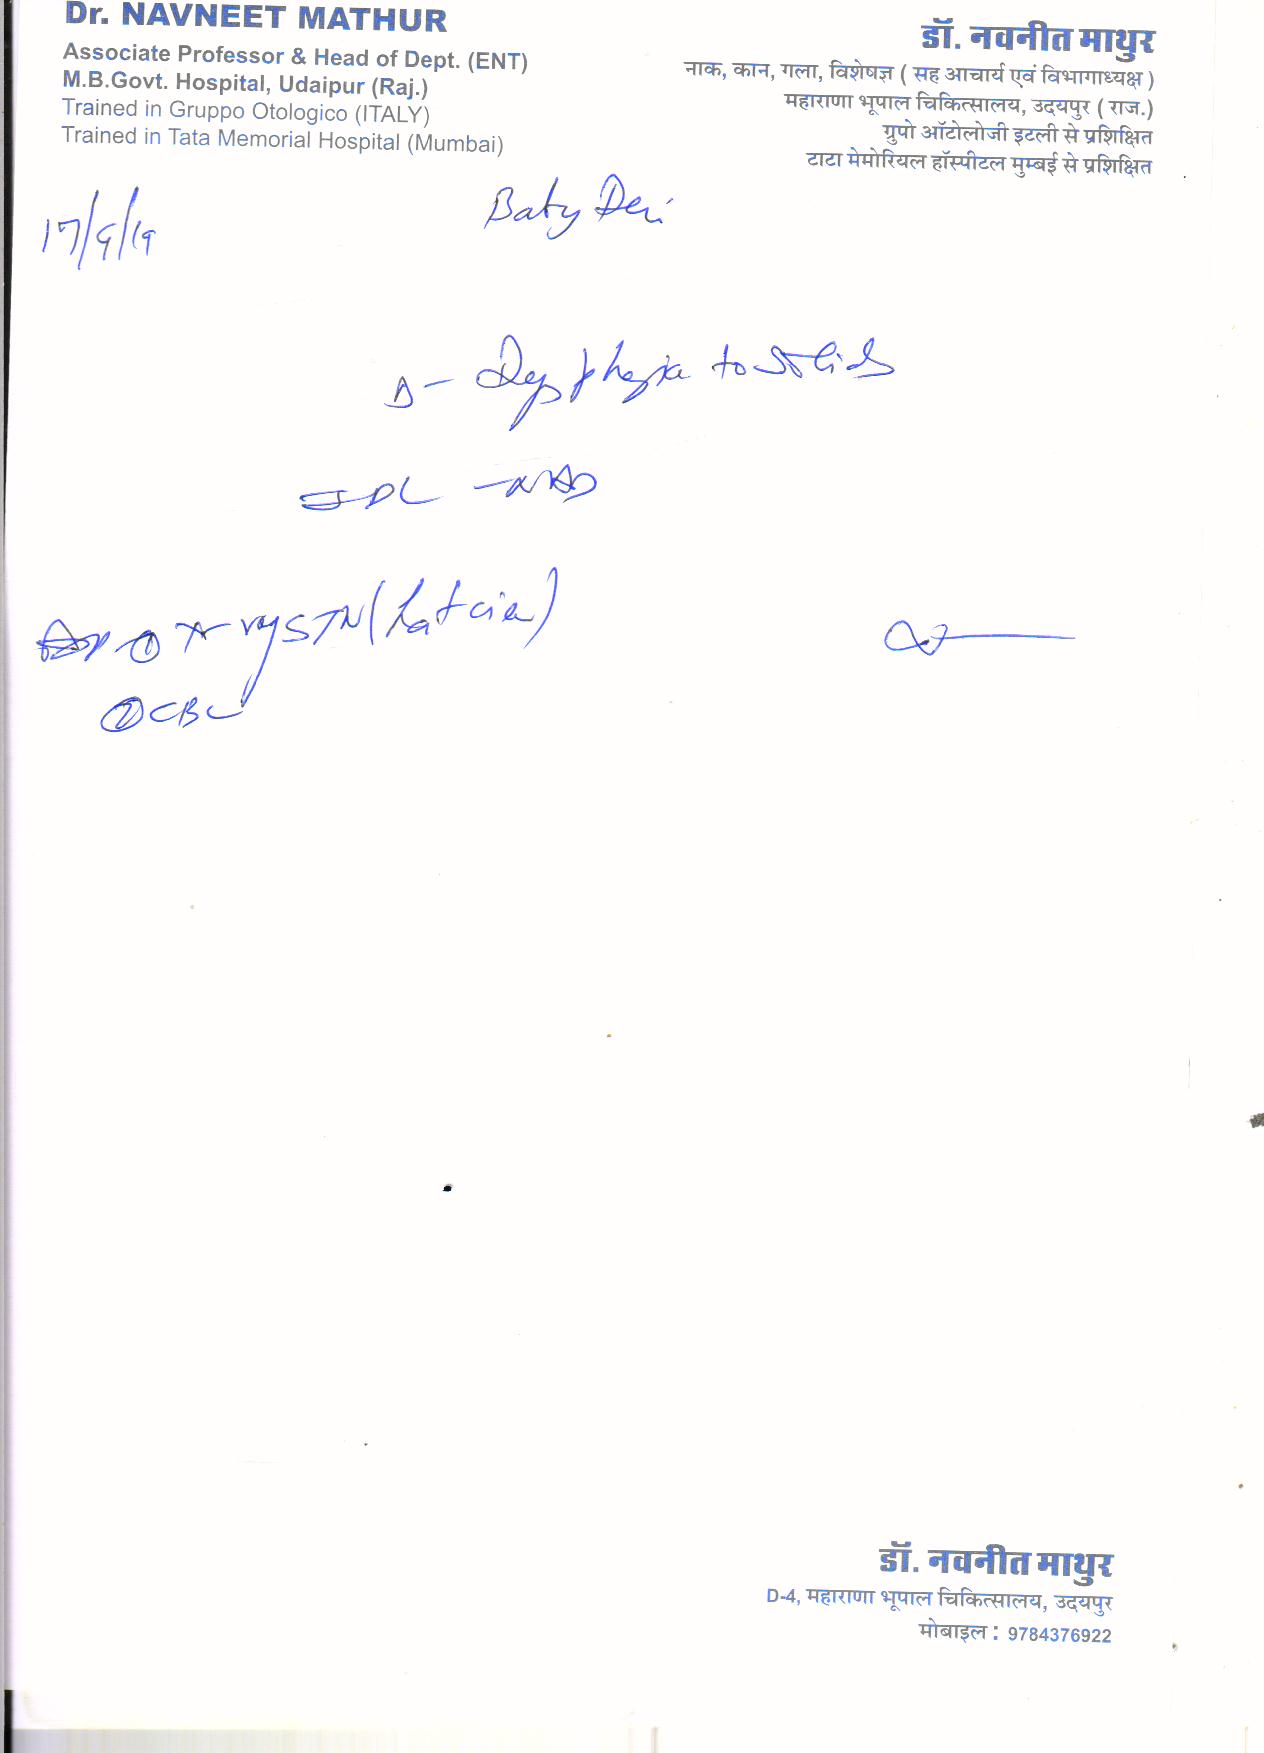 Dr. NAVNEET MATHUR
Associate Professor & Head of Dept. (ENT)
M.B.Govt. Hospital, Udaipur (Raj.)
Trained in Gruppo Otologico (ITALY)
Trained in Tata Memorial Hospital (Mumbai)
डॉ. नवनीत माथुर
नाक, कान, गला, विशेषज्ञ ( सह आचार्य एवं विभागाध्यक्ष )
महाराणा भूपाल चिकित्सालय, उदयपुर ( राज.)
ग्रुपो ऑटोलोजी इटली से प्रशिक्षित
टाटा मेमोरियल हॉस्पीटल मुम्बई से प्रशिक्षित
17/9/19
Devi
Δ- Dysphagia to solids
IDL - NAD
① X-ray STN (Lat
② CBC
डॉ. नवनीत माथुर
D-4, महाराणा भूपाल चिकित्सालय, उदयपुर
मोबाइल : 9784376922